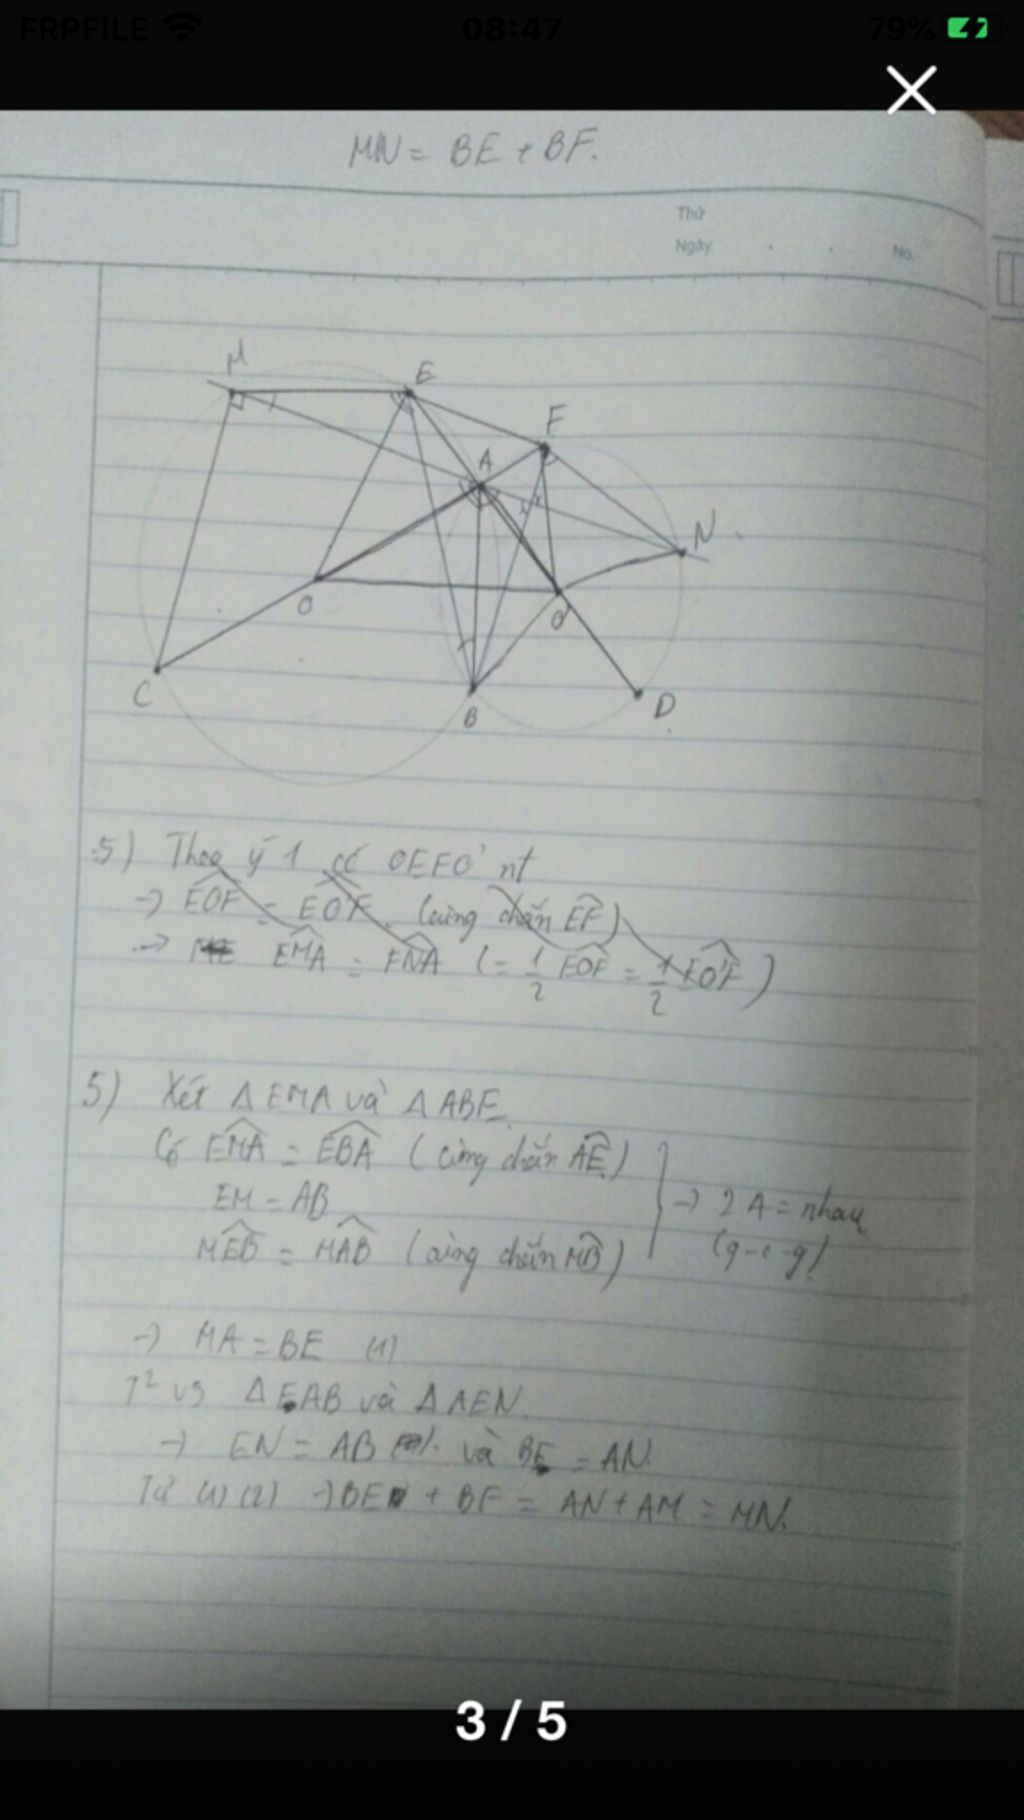 FRPFILE 08:47 79%
MN = BE + BF.
Thứ
Ngày . . No.
M E
F
A
N
O O'
C D
B
5) Theo ý 1 có OEFO' nt
→ EOF = EO'F (cùng chắn EF)
→ EMA = FNA (= 1/2 EOF = 1/2 EO'F)
5) Xét Δ EMA và Δ ABE
Có EMA = EBA (cùng chắn AE)
EM = AB
MEB = MAB (cùng chắn MB)
→ 2 Δ = nhau
(g-c-g)
→ MA = BE (1)
T² vs Δ FAB và Δ AEN
→ EN = AB và BF = AN
Từ (1) (2) → BE + BF = AN + AM = MN.
3 / 5